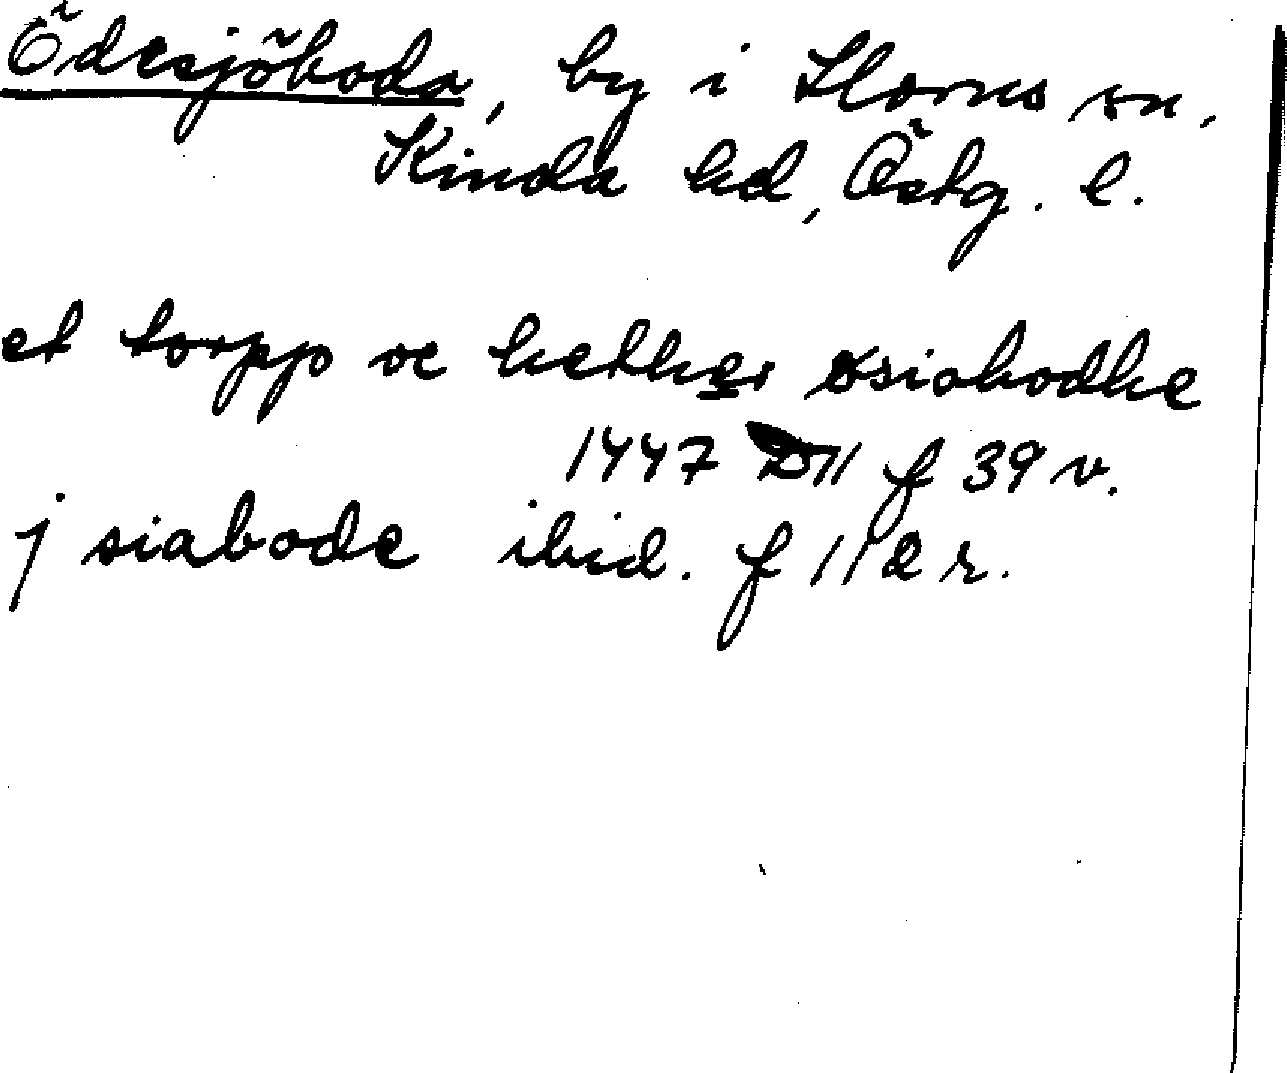 Ödesjöboda, by i Horns sn,
Kinda hd, Östg. l.
et torpp oc hether øsiabodhe
1447 D11 f 39 v.
j siabode ibid. f 112 r.